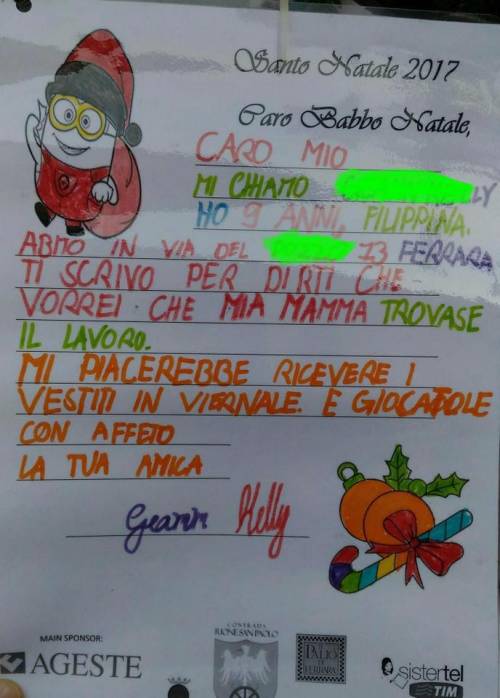 Santo Natale 2017
Caro Babbo Natale,
CARO MIO
MI CHIAMO
HO 9 ANNI, FILIPPINA.
ABITO IN VIA DEL 13 FERRARA
TI SCRIVO PER DIRTI CHE
VORREI CHE MIA MAMMA TROVASE
IL LAVORO.
MI PIACEREBBE RICEVERE I
VESTITI IN VIERNALE. E GIOCATOLE
CON AFFETO
LA TUA AMICA
Kelly
MAIN SPONSOR:
AGESTE
CONTRADA
RIONE SAN PAOLO
PALIO
DI
FERRARA
sistertel
TIM